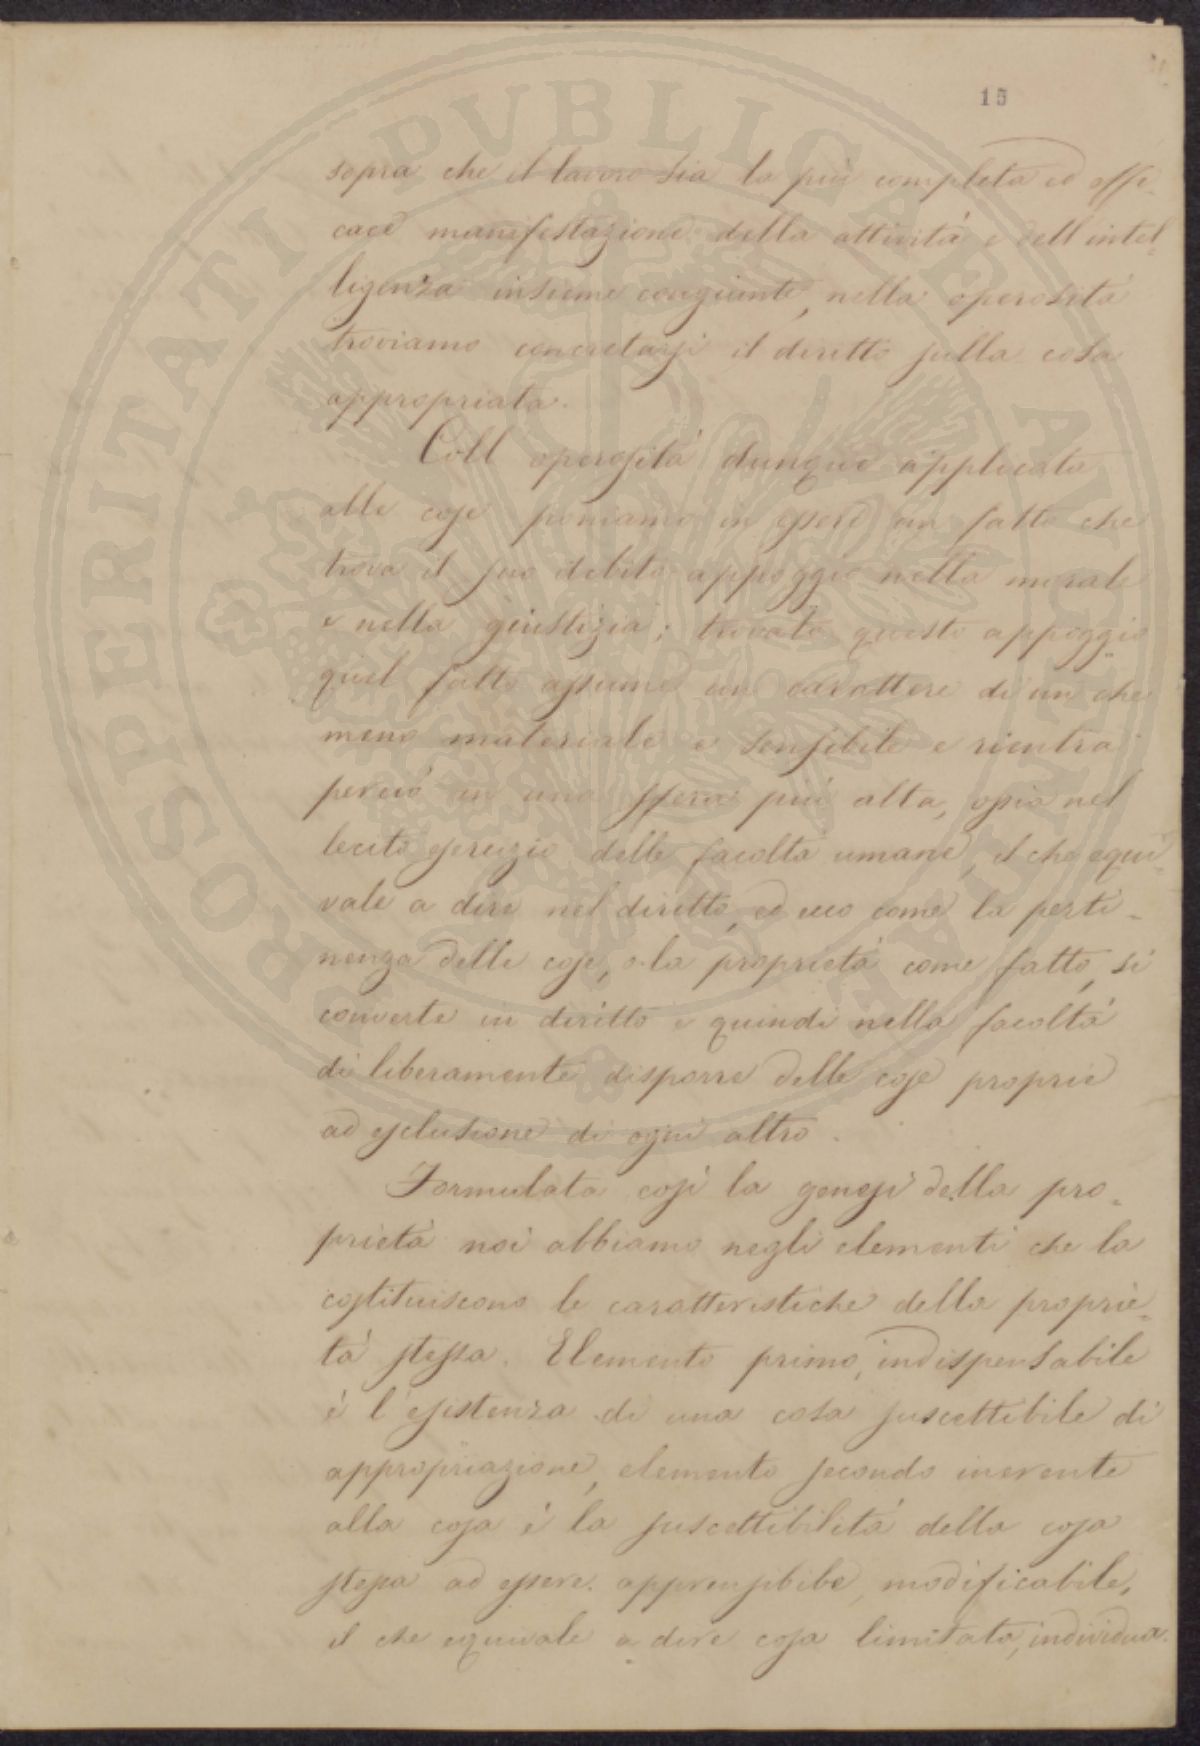 15
sopra che il lavoro sia la più completa ed effi-
cace manifestazione della attività e dell'intel-
ligenza insieme congiunte, nella operosità
troviamo concretarsi il diritto sulla cosa
appropriata.
Coll operosità dunque applicata
alle cose poniamo in essere un fatto che
trova il suo debito appoggio nella morale
e nella giustizia; trovato questo appoggio
quel fatto assume un carattere di un che
meno materiale e sensibile e rientra
perciò in una sfera più alta, ossia nel
lecito esercizio delle facoltà umane, il che equi-
vale a dire nel diritto, ed ecco come la perti-
nenza delle cose, o la proprietà come fatto, si
converte in diritto e quindi nella facoltà
di liberamente disporre delle cose proprie
ad esclusione di ogni altro.
Formulata così la genesi della pro-
prietà noi abbiamo negli elementi che la
costituiscono le caratteristiche della proprie-
tà stessa. Elemento primo, indispensabile
è l'esistenza di una cosa suscettibile di
appropriazione, elemento secondo inerente
alla cosa è la suscettibilità della cosa
stessa ad essere apprensibile, modificabile,
il che equivale a dire cosa limitata, individua.
PROSPERITATI PVBLICAE AVGENDAE